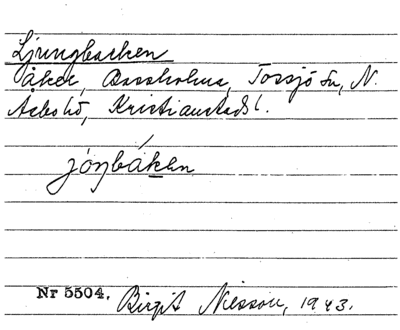 Ljungbacken
Åker, Bassholma, Torsjö sn, N.
Åsbo hd, Kristianstads l.
jóŋbáken
Nr 5504. Birgit Nilsson, 1943.